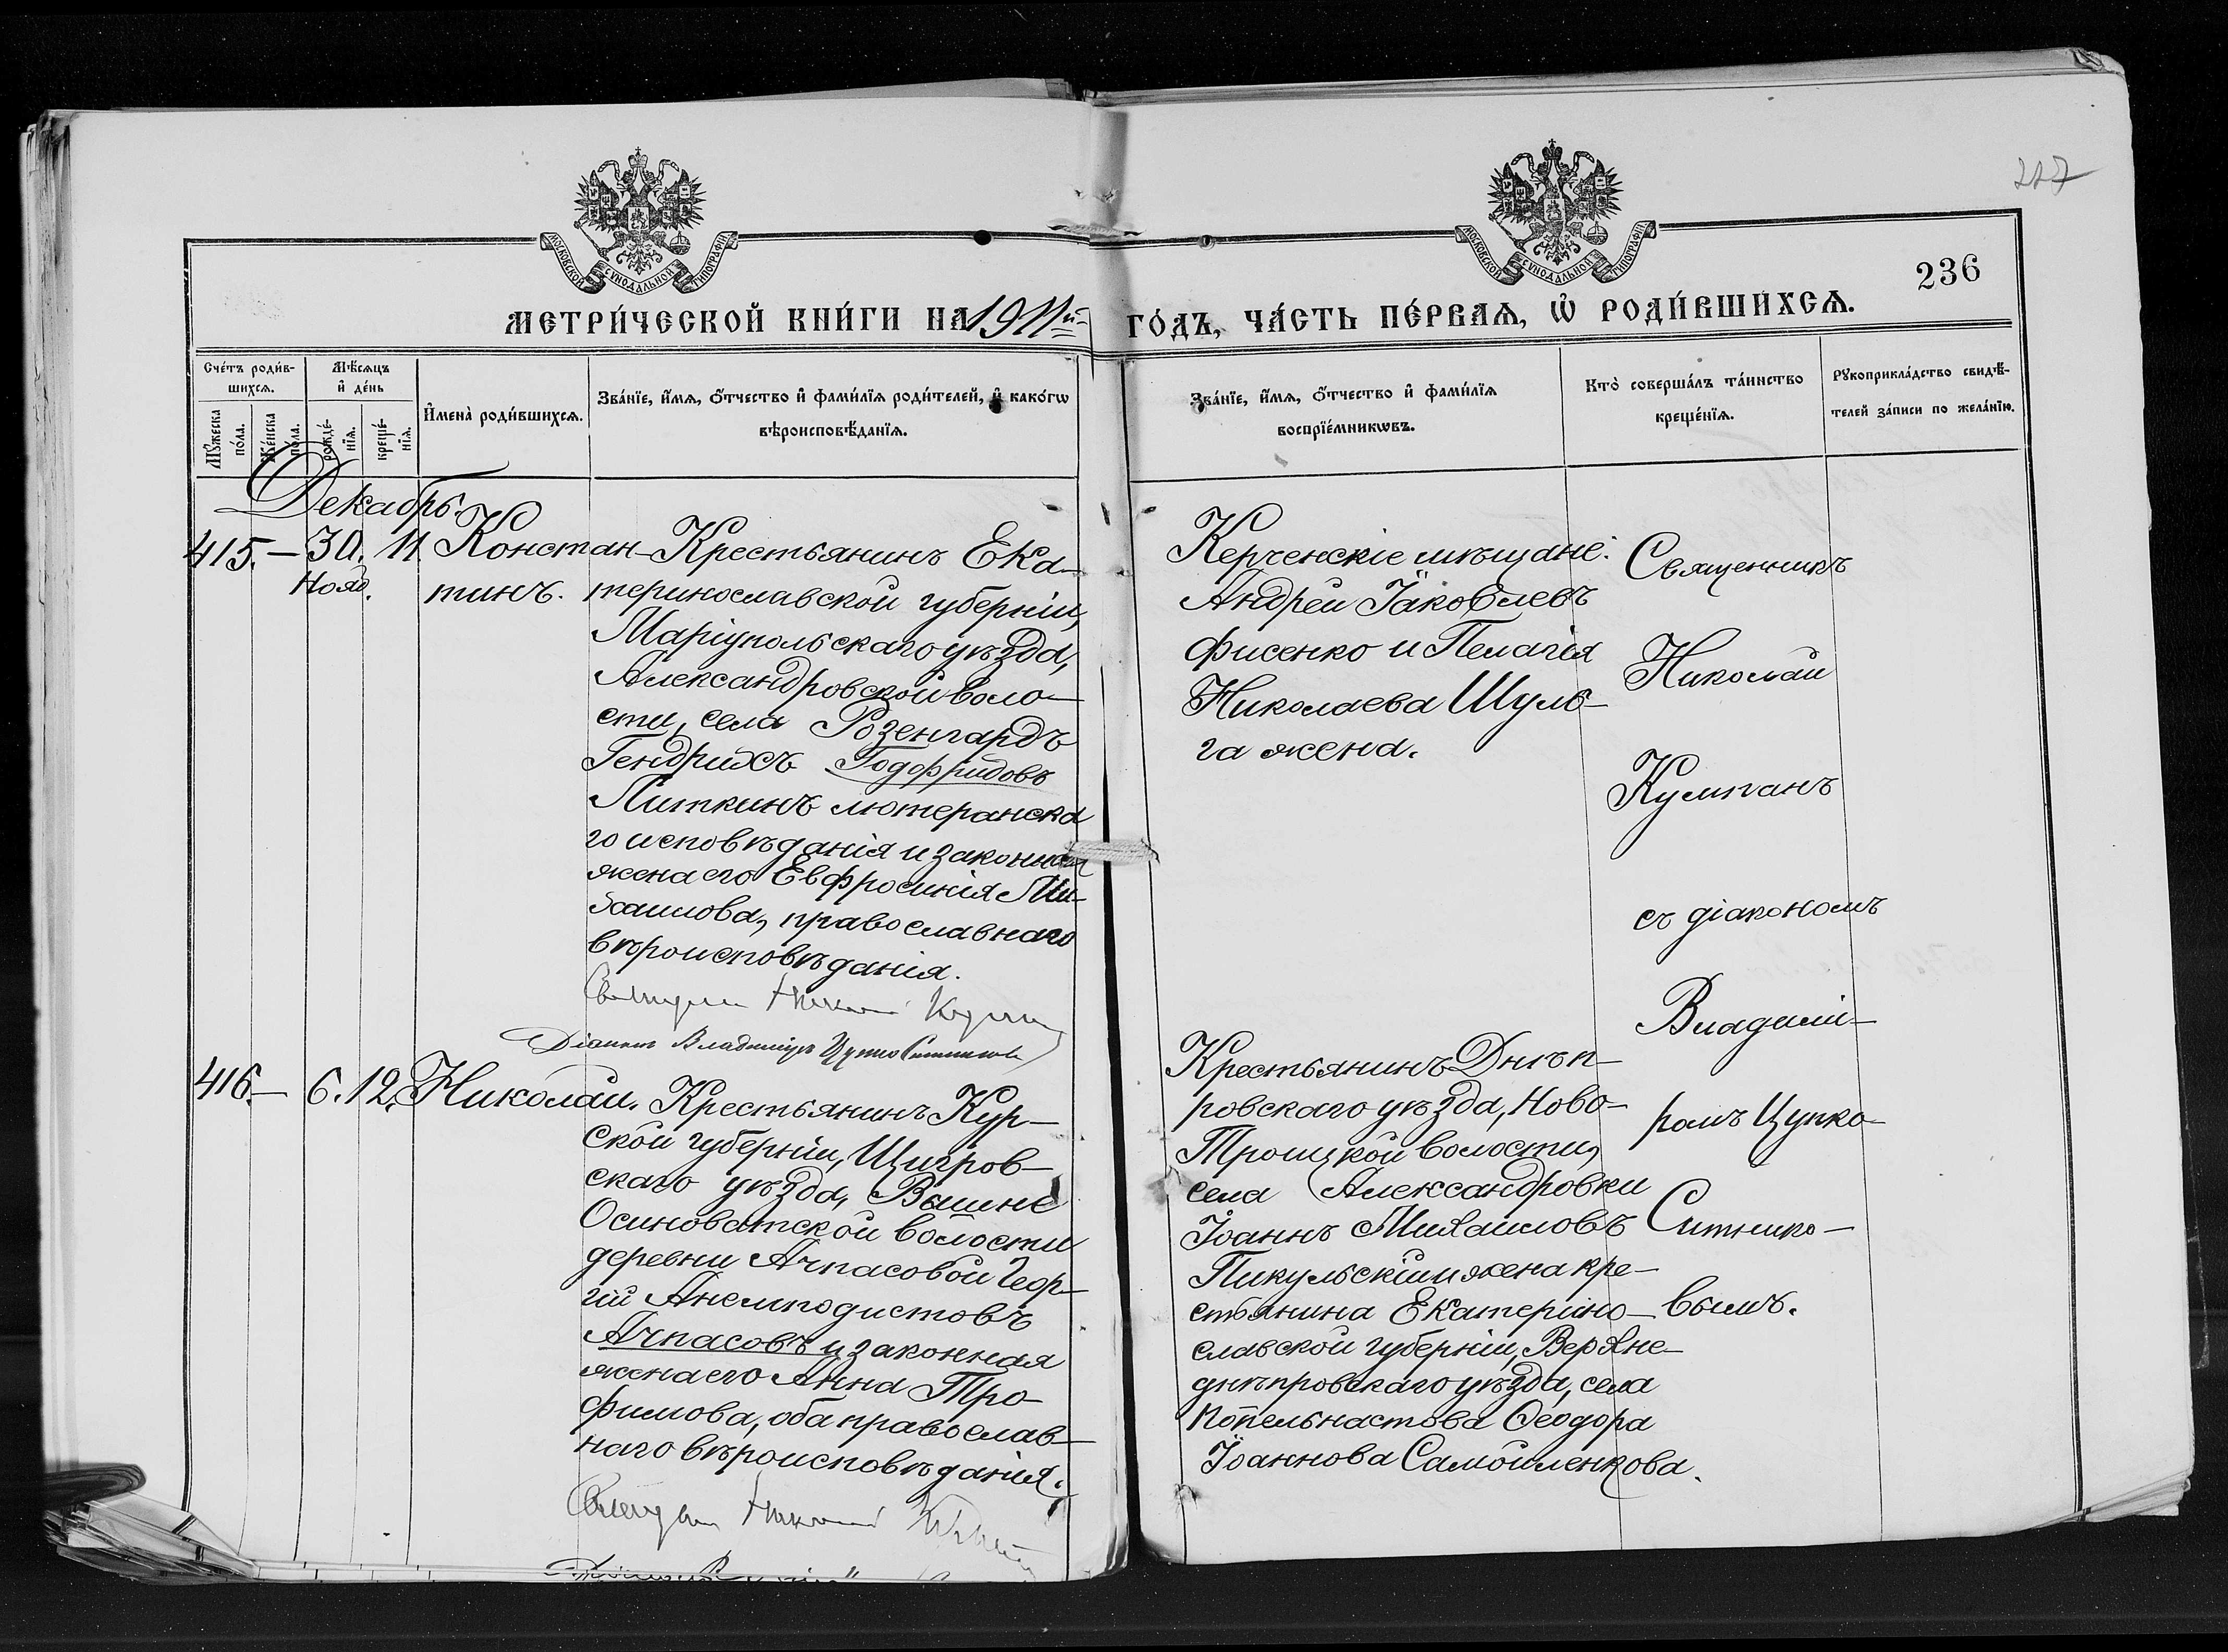 227
МОСКОВСКОЙ СѴНОДАЛЬНОЙ ТИПОГРАФІИ
МОСКОВСКОЙ СѴНОДАЛЬНОЙ ТИПОГРАФІИ
236
МЕТРИ́ЧЕСКОЙ КНИ́ГИ НА 1911й ГО́ДЪ, ЧА́СТЬ ПЕ́РВАѦ, Ѡ҆ РОДИ́ВШИХСѦ.
Сче́тъ роди́в-
шихсѧ.
Мꙋ́жеска
по́ла.
Же́нска
по́ла.
Мѣ́сѧцъ
и҆ де́нь
рожде́-
нїѧ.
креще́-
нїѧ.
И҆мена̀ роди́вшихсѧ.
Зва́нїе, и҆́мѧ, ѻ҆́тчество и҆ фами́лїѧ роди́телей, и҆ како́гѡ
вѣроисповѣ́данїѧ.
Зва́нїе, и҆́мѧ, ѻ҆́тчество и҆ фами́лїѧ
воспрїе́мникѡвъ.
Кто̀ соверша́лъ та́инство
креще́нїѧ.
Рꙋкоприкла́дство свидѣ́-
телей за́писи по жела́нїю.
Декабрь.
415. — 30. 11. Констан-
Нояб. тинъ.
Крестьянинъ Ека-
теринославской губерніи,
Маріупольскаго уѣзда,
Александровской воло-
сти, села Розенгардъ
Гендрихъ Годфридовъ
Питкинъ лютеранска
го исповѣданія и законная
жена его Евфросинія Ми-
хаилова, православнаго
вѣроисповѣданія.
Священникъ Николай Кулпанъ
Діаконъ Владиміръ Цупко Ситниковъ
Керченскіе мѣщане:
Андрей Іаковлевъ
Фисенко и Пелагія
Николаева Шуль-
га жена.
Священникъ
Николай
Кулпанъ
съ діакономъ
Владимі-
ромъ Цупко-
Ситнико-
вымъ.
416. — 6. 12. Николай.
Крестьянинъ Кур-
ской губерніи, Щигров-
скаго уѣзда, Вышне
Осиноватской волости
деревни Апасовой Геор-
гій Анемподистовъ
Апасовъ и законная
жена его Анна Тро-
фимова, оба православ-
наго вѣроисповѣданія.
Священникъ Николай
Крестьянинъ Днѣп-
ровскаго уѣзда, Ново-
Троицкой волости,
села Александровки
Іоаннъ Михаиловъ
Пикульскій и жена кре-
стьянина Екатерино-
славской губерніи, Верхне-
днѣпровскаго уѣзда, села
Попельнастова Ѳеодора
Іоаннова Самойленкова.